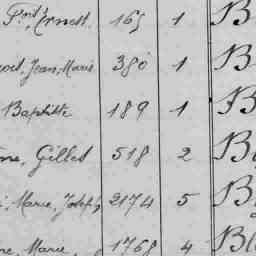 Ernest. 165 1 B
Jean, Marie 380 1 B
Baptiste 189 1 B
Gilles 518 2 B
Marie, Joseph 2174 5 B
Marie 1768 4 Bl